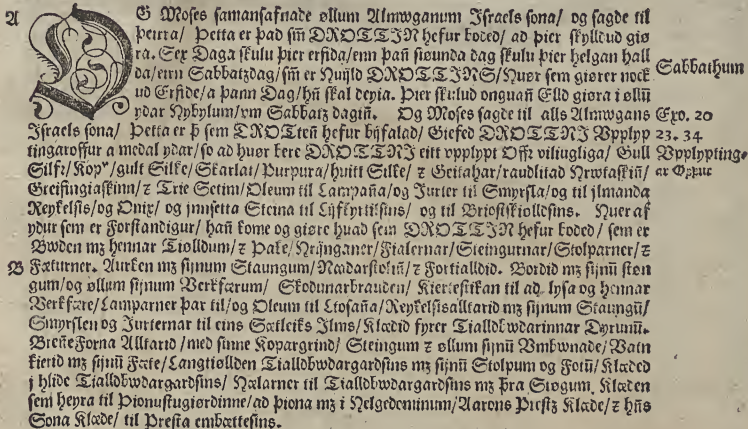 A
OG Moses samansafnade øllum Almwganum Jsraels sona/ og sagde til
þeirra/ Þetta er þad sm̃ DROTTJN hefur boded/ ad þier skyllud giø
ra. Sex Daga skulu þier erfida/enn þañ siøunda dag skulu þier helgan hall
da/einn Sabbatzdag/sm̃ er Huijld DROTTJNS/Huør sem giører nock
ud Erfide/a þann Dag/hñ skal deyia. Þier skulud onguañ Elld giøra i øllũ
ydar Hybylum/vm Sabbatz dagiñ. Og Moses sagde til alls Almwgans
Jsraels sona/ Þetta er þ sem DROTteñ hefur bijfalad/ Giefed DROTTJNJ Vpplyp
tingaroffur a medal ydar/so ad huør bere DROTTJNJ eitt vpplypt Offr viliugliga/ Gull
Silfr/ Kopr/gult Silke/Skarlat/Purpura/huitt Silke/ z Geitahar/raudlitad Hrwtaskiñ/
Greifingiaskinn/z Trie Setim/Oleum til Lampaña/og Jurter til Smyrsla/og til jlmanda
Reykelsis/og Onix/ og jnnsetta Steina til Lijfkyrtilsins/ og til Briostskiolldsins. Huer af
ydur sem er Forstandigur/ hañ kome og giøre huad sem DROTTJN hefur boded/ sem er
Bwden mz hennar Tiølldum/z Þake/Hrijnganer/Fialernar/Steingurnar/Stolparner/z
B Fæturner. Aurken mz sijnum Staungum/Naadarstolñ/z Fortialldid. Bordid mz sijnũ støn
gum/og øllum sijnum Verkfærum/ Skodunarbrauden/ Kiertestikan til ad lysa og hennar
Verkfære/Lamparner þar til/og Oleum til Liosaña/Reykelsisalltarid mz sijnum Staungũ/
Smyrslen og Jurternar til eins Sætleiks Jlms/Klædid fyrer Tialldbwdarinnar Dyrunũ.
Breñeforna Alltarid /med sinne Kopargrind/ Steingum z øllum sijnũ Vmbwnade/Vatn
kierid mz sijnũ Fæte/Langtiøllden Tialldbwdargardsins mz sijnũ Stolpum og Fotũ/ Klæded
j hlide Tialldbwdargardsins/ Hælarner til Tialldbwdargardsins mz þra Støgum. Klæden
sem heyra til Þionustugiørdinne/ad þiona mz i Helgedominum/Aarons Prestz Klæde/z hñs
Sona Klæde/ til Presta embættesins.
Sabbathum
Exo. 20
23. 34
Vpplypting-
ar Offur